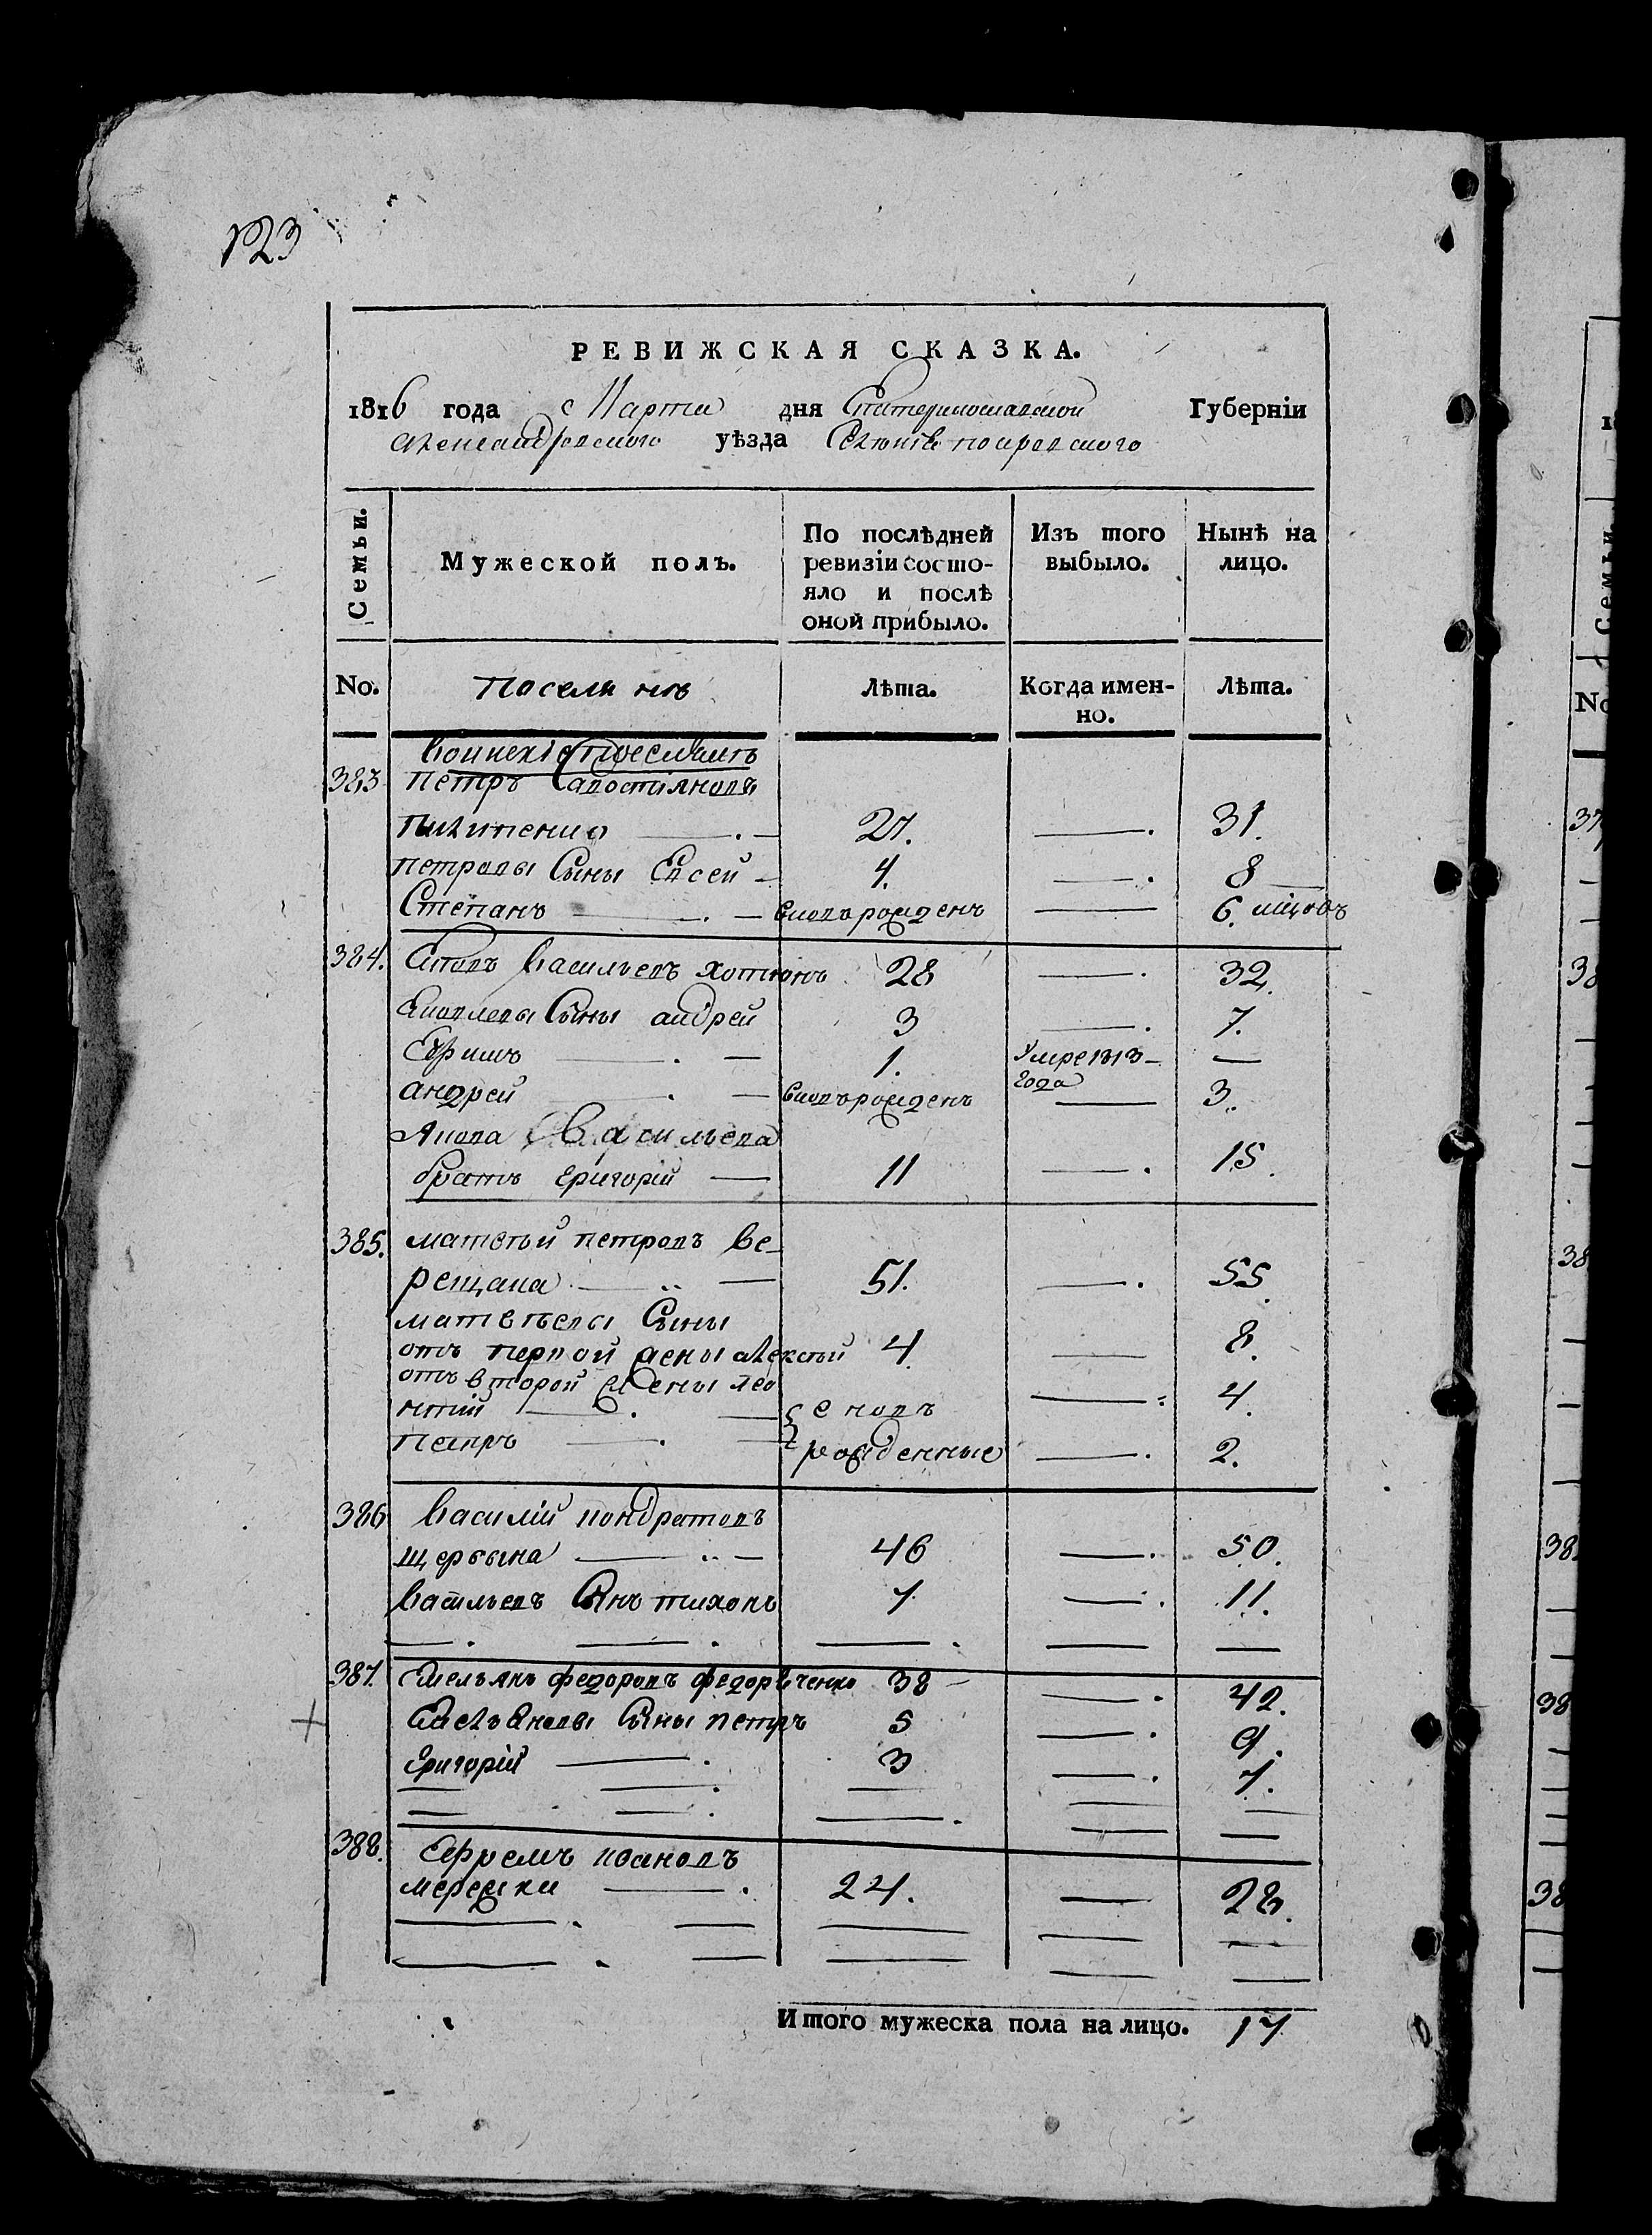 123
РЕВИЖСКАЯ СКАЗКА.
1816 года Марта дня Екатеринославской Губернiи
александровского уѣзда покровского
Семьи.
Мужеской полъ.
По послѣдней ревизiи состояло и послѣ оной прибыло.
Изъ того выбыло.
Нынѣ на лицо.
No.
Поселянъ
Лѣта.
Когда именно.
Лѣта.
383 петръ
27. 31.
петровы Сыны Евсей 4. 8
Степанъ вновърожденъ 6. мѣцовъ
384. Яковъ васильевъ хотюнъ 28 32.
Яковлевы Сыны андрей 3 7.
Ефимъ 1. умре 1813 года
андрей вновърожденъ 3.
Якова васильева
братъ григорiй 11 15.
385. матвѣй петровъ ве
рещака 51. 55.
матвѣевы Сыны
отъ первой жены алексѣй 4 8.
отъ второй жены лео
нтiй вновъ 4.
петръ рожденные 2.
386 василiй кондратовъ
щербына 46 50.
васильевъ Сынъ тихонъ 7 11.
387. Емельянъ федоровъ федорѣченко 38 42.
Емельяновы Сыны петръ 5 9.
григорiй 3 7.
388. Ефремъ ивановъ
мережки 24. 28.
Итого мужеска пола на лицо. 17